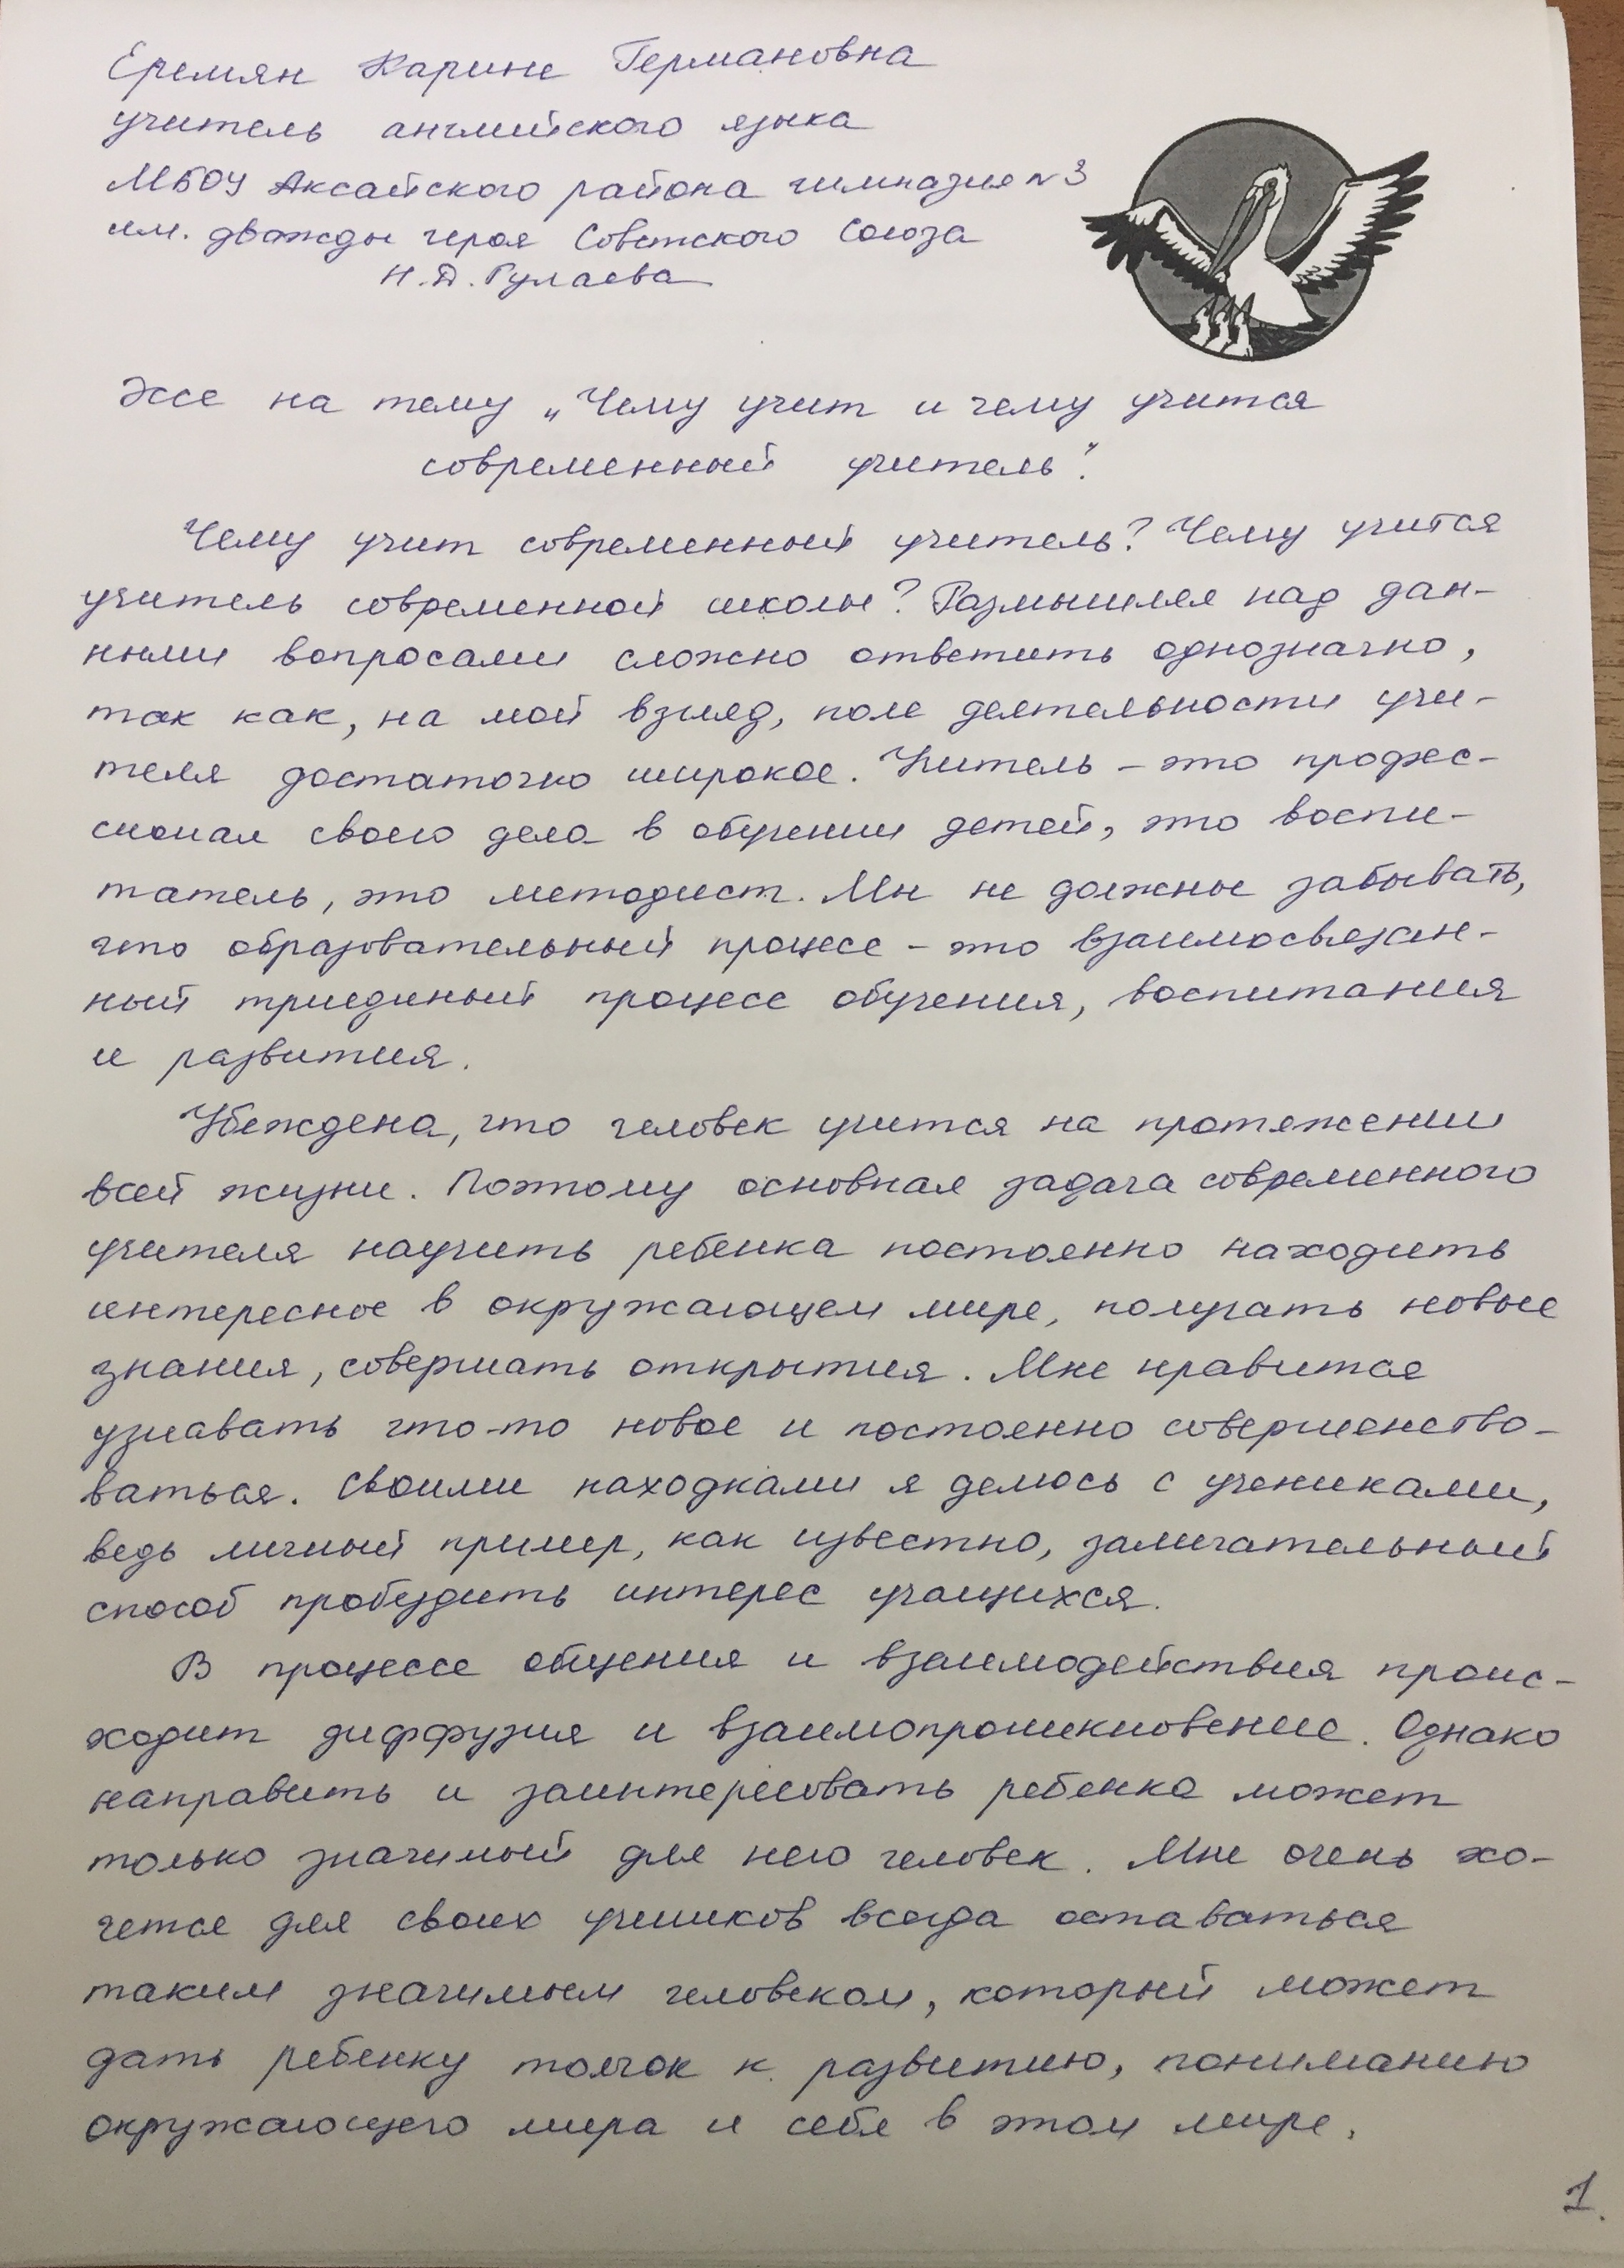 Еремян Карине Германовна
учитель английского языка
МБОУ Аксайского района гимназия №3
им. дважды героя Советского Союза
Н.Д. Гулаева
Эссе на тему „Чему учит и чему учится
современный учитель".
Чему учит современный учитель? Чему учится
учитель современной школы? Размышляя над дан-
ными вопросами сложно ответить однозначно,
так как, на мой взгляд, поле деятельности учи-
теля достаточно широкое. Учитель – это профес-
сионал своего дела в обучении детей, это воспи-
татель, это методист. Мы не должны забывать,
что образовательный процесс – это взаимосвязан-
ный триединый процесс обучения, воспитания
и развития.
Убеждена, что человек учится на протяжении
всей жизни. Поэтому основная задача современного
учителя научить ребенка постоянно находить
интересное в окружающем мире, получать новые
знания, совершать открытия. Мне нравится
узнавать что-то новое и постоянно совершенство-
ваться. Своими находками я делюсь с учениками,
ведь личный пример, как известно, замечательный
способ пробудить интерес учащихся.
В процессе общения и взаимодействия проис-
ходит диффузия и взаимопроникновение. Однако
направить и заинтересовать ребенка может
только значимый для него человек. Мне очень хо-
чется для своих учеников всегда оставаться
таким значимым человеком, который может
дать ребенку толчок к развитию, пониманию
окружающего мира и себя в этом мире.
1.